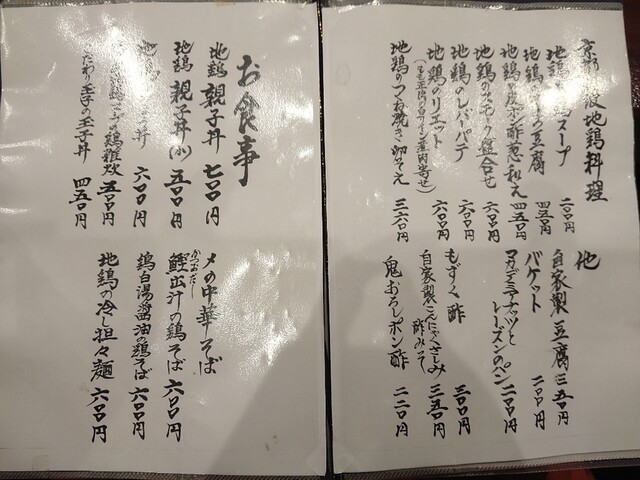 京都 丹波地鶏料理
地鶏 スープ 二〇〇円
地鶏の 豆腐 四五〇円
地鶏の皮ポン酢葱和え 四五〇円
地鶏のスモーク盛合せ 六〇〇円
地鶏のレバパテ 六〇〇円
地鶏のリエット 六〇〇円
地鶏のつね焼き 三六〇円
他
自家製豆腐 三五〇円
バケット 二〇〇円
マカデミアナッツと
レーズンのパン 二〇〇円
もずく酢 三〇〇円
自家製こんにゃくさしみ
酢みそ 三五〇円
鬼おろしポン酢 二二〇円
お食事
地鶏親子丼 七〇〇円
地鶏親子丼(小) 五〇〇円
地鶏 丼 六〇〇円
鶏雑炊 五〇〇円
こだわり玉子の玉子丼 四五〇円
〆の中華そば
かつおだし
鰹出汁の鶏そば 六〇〇円
鶏白湯醤油の鶏そば 六〇〇円
地鶏の冷し担々麺 六〇〇円